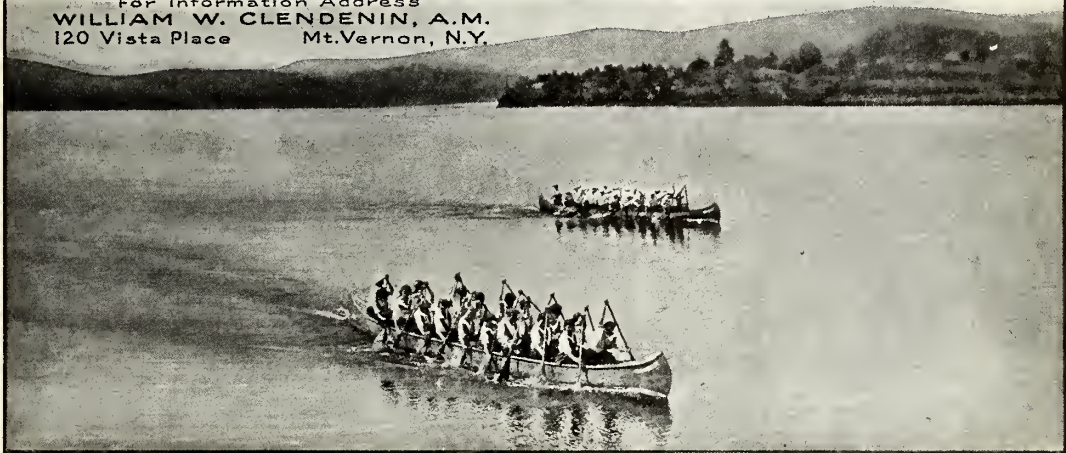 For Information Address
WILLIAM W. CLENDENIN, A.M.
120 Vista Place Mt.Vernon, N.Y.